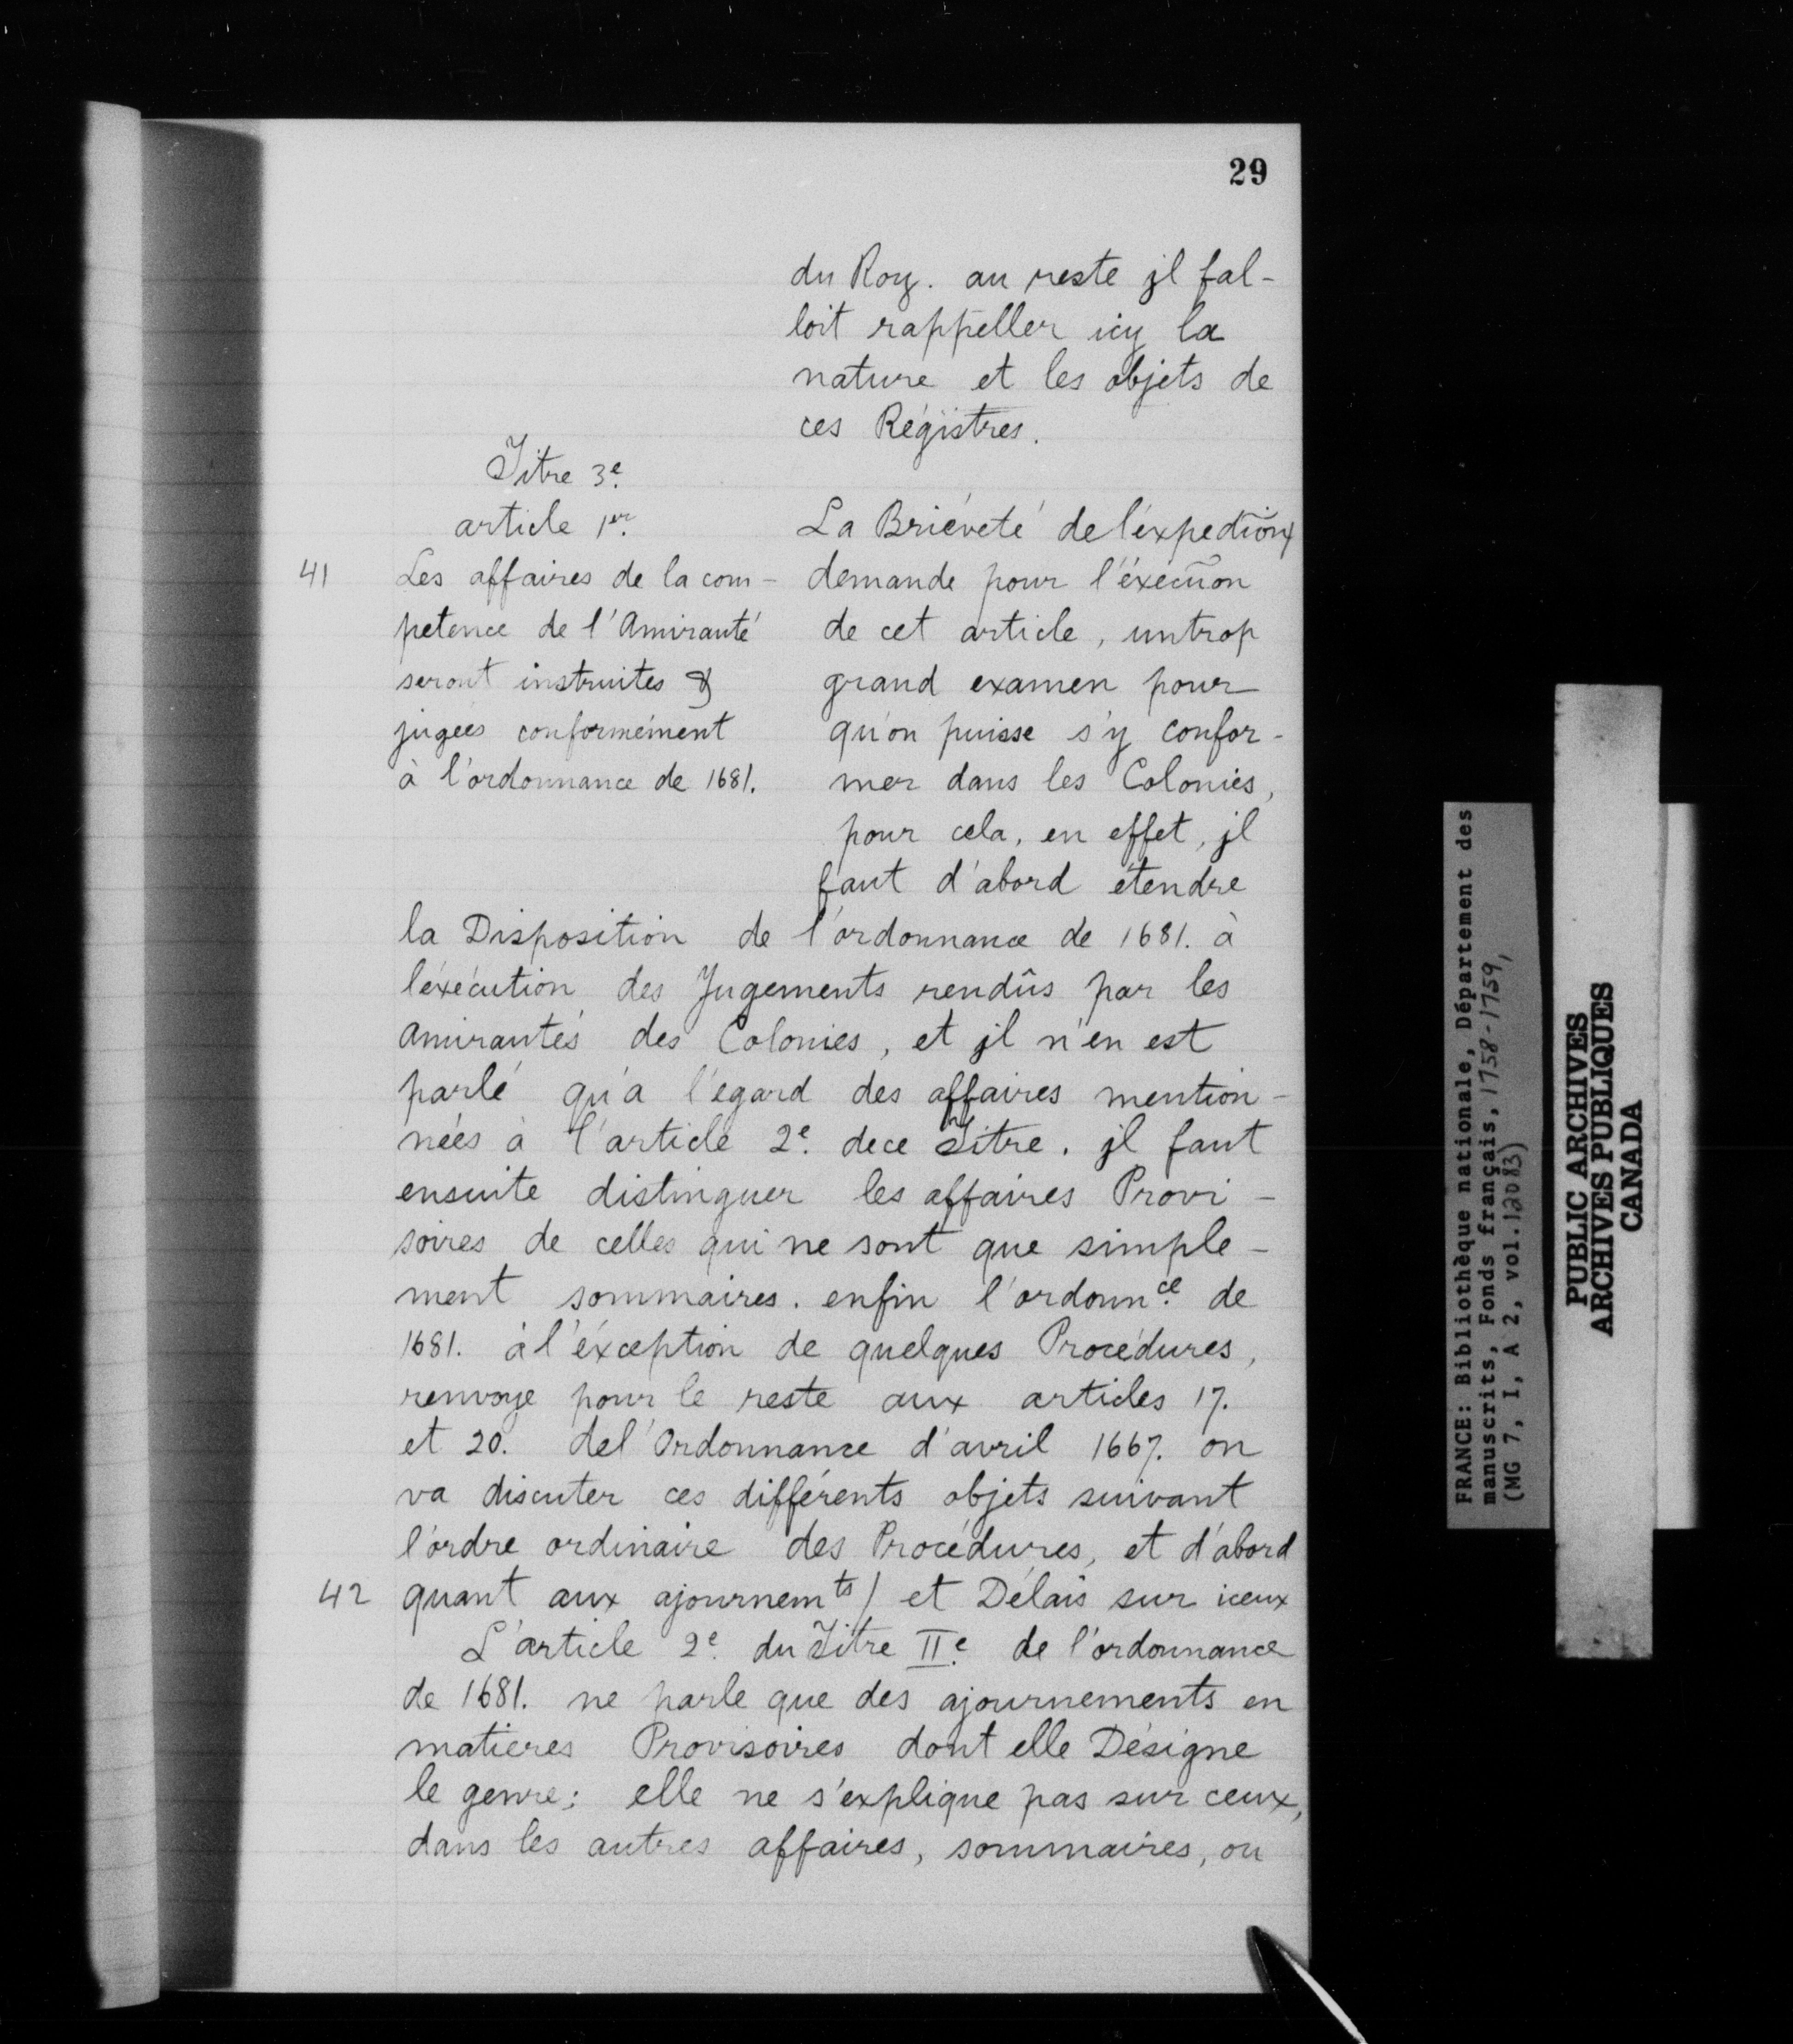 29
du Roy. au reste jl fal-
loit rappeller icy la
nature et les objets de
ces Régistres.
Titre 3e.
article 1er.
41
Les affaires de la com-
petence de l'Amirauté
seront instruites &
jugées conformément
à l'ordonnance de 1681.
La Briéveté de l'éxpedion
demande pour l'éxécuon
de cet article, untrop
grand examen pour
qu'on puisse s'y confor-
mer dans les Colonies,
pour cela, en effet, jl
faut d'abord étendre
la Disposition de l'ordonnance de 1681. à
l'éxécution des Jugements rendûs par les
amirautés des Colonies, et jl n'en est
parlé qu'a l'égard des affaires mention-
nées à l'article 2e. dece Titre. jl faut
ensuite distinguer les affaires Provi-
soires de celles qui ne sont que simple-
ment sommaires. enfin l'ordonnce. de
1681. à l'éxception de quelques Procédures,
renvoye pour le reste aux articles 17.
et 20. del'Ordonnance d'avril 1667. on
va discuter ces différents objets suivant
l'ordre ordinaire des Procédures, et d'abord
42
quant aux ajournemts/ et Délais sur iceux
L'article 2e. du Titre IIe. de l'ordonnance
de 1681. ne parle que des ajournements en
matieres Provisoires dont elle Désigne
le genre; elle ne s'explique pas sur ceux,
dans les autres affaires, sommaires, ou
FRANCE: Bibliothèque nationale, Département des
manuscrits, Fonds français, 1758-1759,
(MG 7, I, A 2, vol.12083)
PUBLIC ARCHIVES
ARCHIVES PUBLIQUES
CANADA